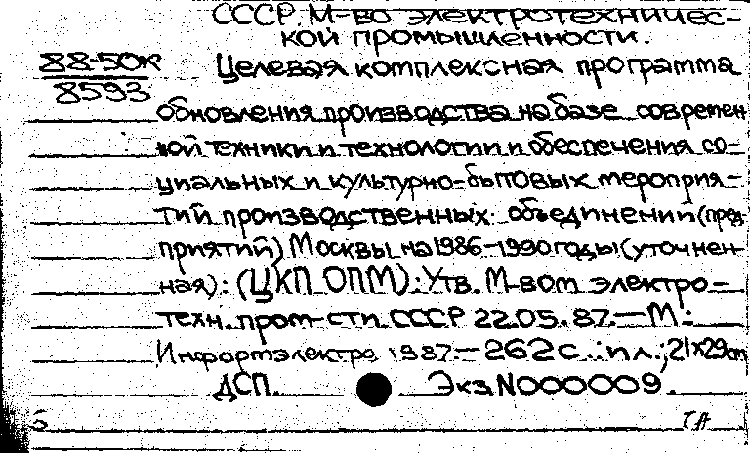 СССР. М-во электротехничес-
кой промышленности.
88-50к Целевая комплексная программа
8593
обновления производства на базе современ
ной техники и технологии и обеспечения со-
циальных и культурно-бытовых мероприя-
тий производственных объединений (пред
приятий) Москвы на 1986-1990 годы (уточнен-
ная): (ЦКП ОПМ): Утв. М-вом электро-
техн. пром-сти СССР 22.05.87.—М.:
Информэлектро 1987.—262с. :ил.; 21×29см
ДСП. Экз.N000009.
Б ТА